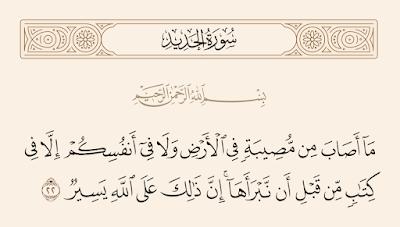 سُورَةُ الحَدِيدِ
بِسْمِ اللَّهِ الرَّحْمَٰنِ الرَّحِيمِ
مَآ أَصَابَ مِن مُّصِيبَةٍ فِي ٱلْأَرْضِ وَلَا فِيٓ أَنفُسِكُمْ إِلَّا فِي
كِتَٰبٍ مِّن قَبْلِ أَن نَّبْرَأَهَآ ۚ إِنَّ ذَٰلِكَ عَلَى ٱللَّهِ يَسِيرٌ ٢٢